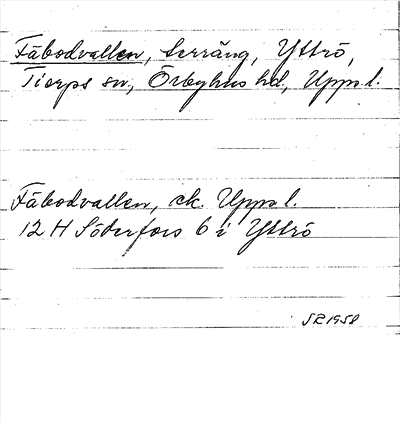 Fäbodvallen, terräng, Yttrö,
Tierps sn, Örbyhus hd, Upps l.
Fäbodvallen, ek. Upps l.
12 H Söderfors 6 i Yttrö
SR 1958